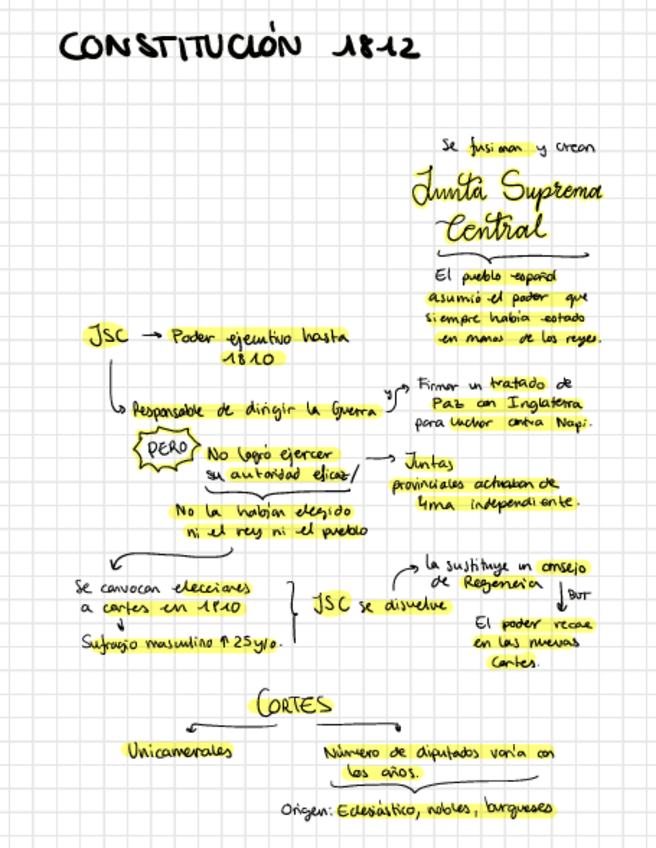 CONSTITUCIÓN 1812
Se fusionan y crean
Junta Suprema
Central
El pueblo español
asumió el poder que
siempre había estado
en manos de los reyes.
JSC → Poder ejecutivo hasta
1810
Responsable de dirigir la Guerra
y → Firmar un tratado de
Paz con Inglaterra
para luchar contra Napi.
PERO
No logró ejercer
su autoridad eficaz/
→ Juntas
provinciales actuaban de
4ma independiente.
No la habían elegido
ni el rey ni el pueblo
Se convocan elecciones
a cortes en 1810
Sufragio masculino ↑ 25 y/o.
JSC se disuelve
la sustituye un consejo
de Regencia
BUT
El poder recae
en las nuevas
Cortes.
CORTES
Unicamerales
Número de diputados varía con
los años.
Origen: Eclesiástico, nobles, burgueses